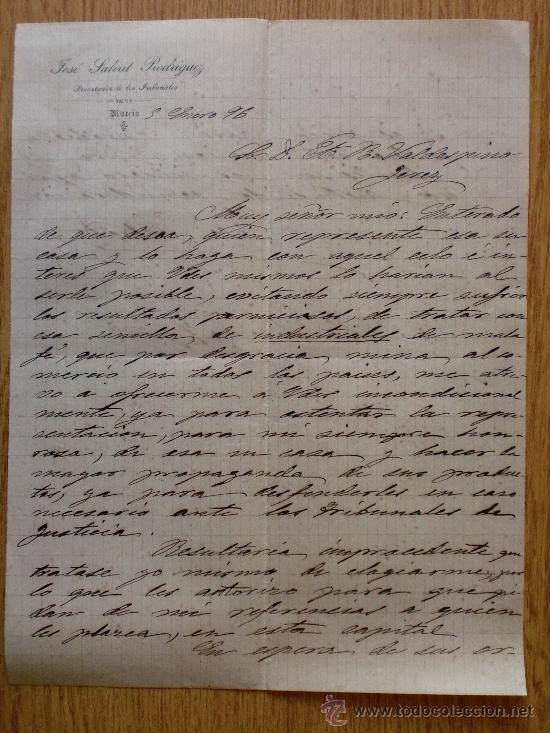 José Salvat Rodríguez
Procurador de los Tribunales
Murcia 5 Enero 96
Sr. D. B. Valdespino
Jerez
Muy señor mio: Enterado
de que desea, quien represente esa su
casa y lo haga con aquel celo é in-
teres que Vdes mismos lo harian al
serle posible, evitando siempre sufrir
los resultados perniciosos, de tratar con
esa semilla, de industriales de mala
fé, que por desgracia, mina al co-
mercio en todos los paises, me atre-
vo a ofrecerme á Vdes incondicional
mente, ya para ostentar la repre-
sentacion, para mi siempre hon-
rosa, de esa su casa y hacer la
mayor propaganda de sus produc-
tos, ya para desfenderles en caso
necesario ante los Tribunales de
Justicia.
Resultaria improcedente que
tratase yo mismo de elogiarme, por
lo que les autorizo para que pi-
dan de mi referencias a quien
les plazca, en esta capital
En espera de sus or-
todocoleccion.net